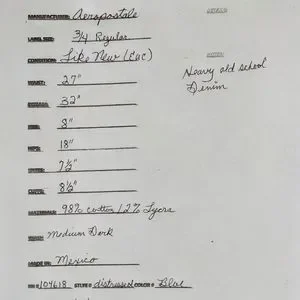 MANUFACTURER: Aeropostale
LABEL SIZE: 3/4 Regular
CONDITION: Like New (EUC)
WAIST: 27"
INSEAM: 32"
8"
HIPS: 18"
7½"
8½"
MATERIALS: 98% cotton / 2% Lycra
Medium Dark
MADE IN: Mexico
104618 STYLE# distressed COLOR# Blue
NOTES:
Heavy old school
Denim